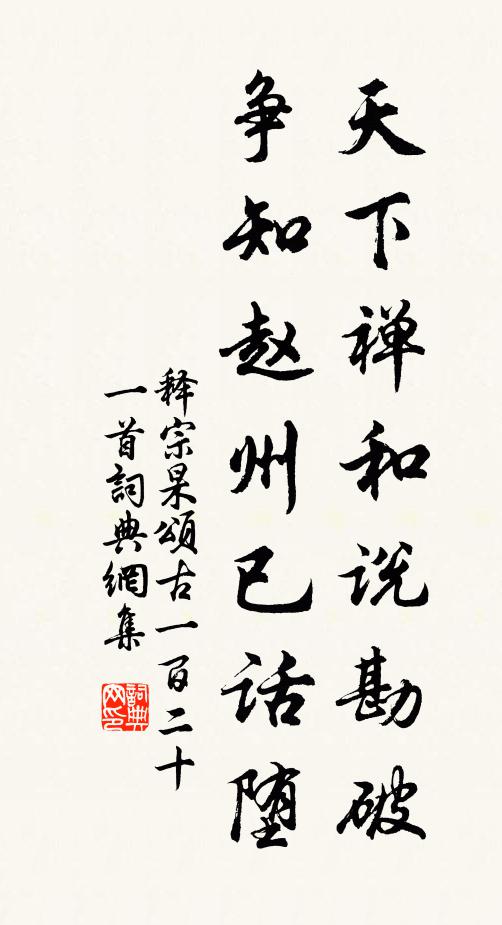 天下禅和说勘破
争知赵州已话堕
释宗杲頌古一百二十
一首詞典網集
詞典
网印